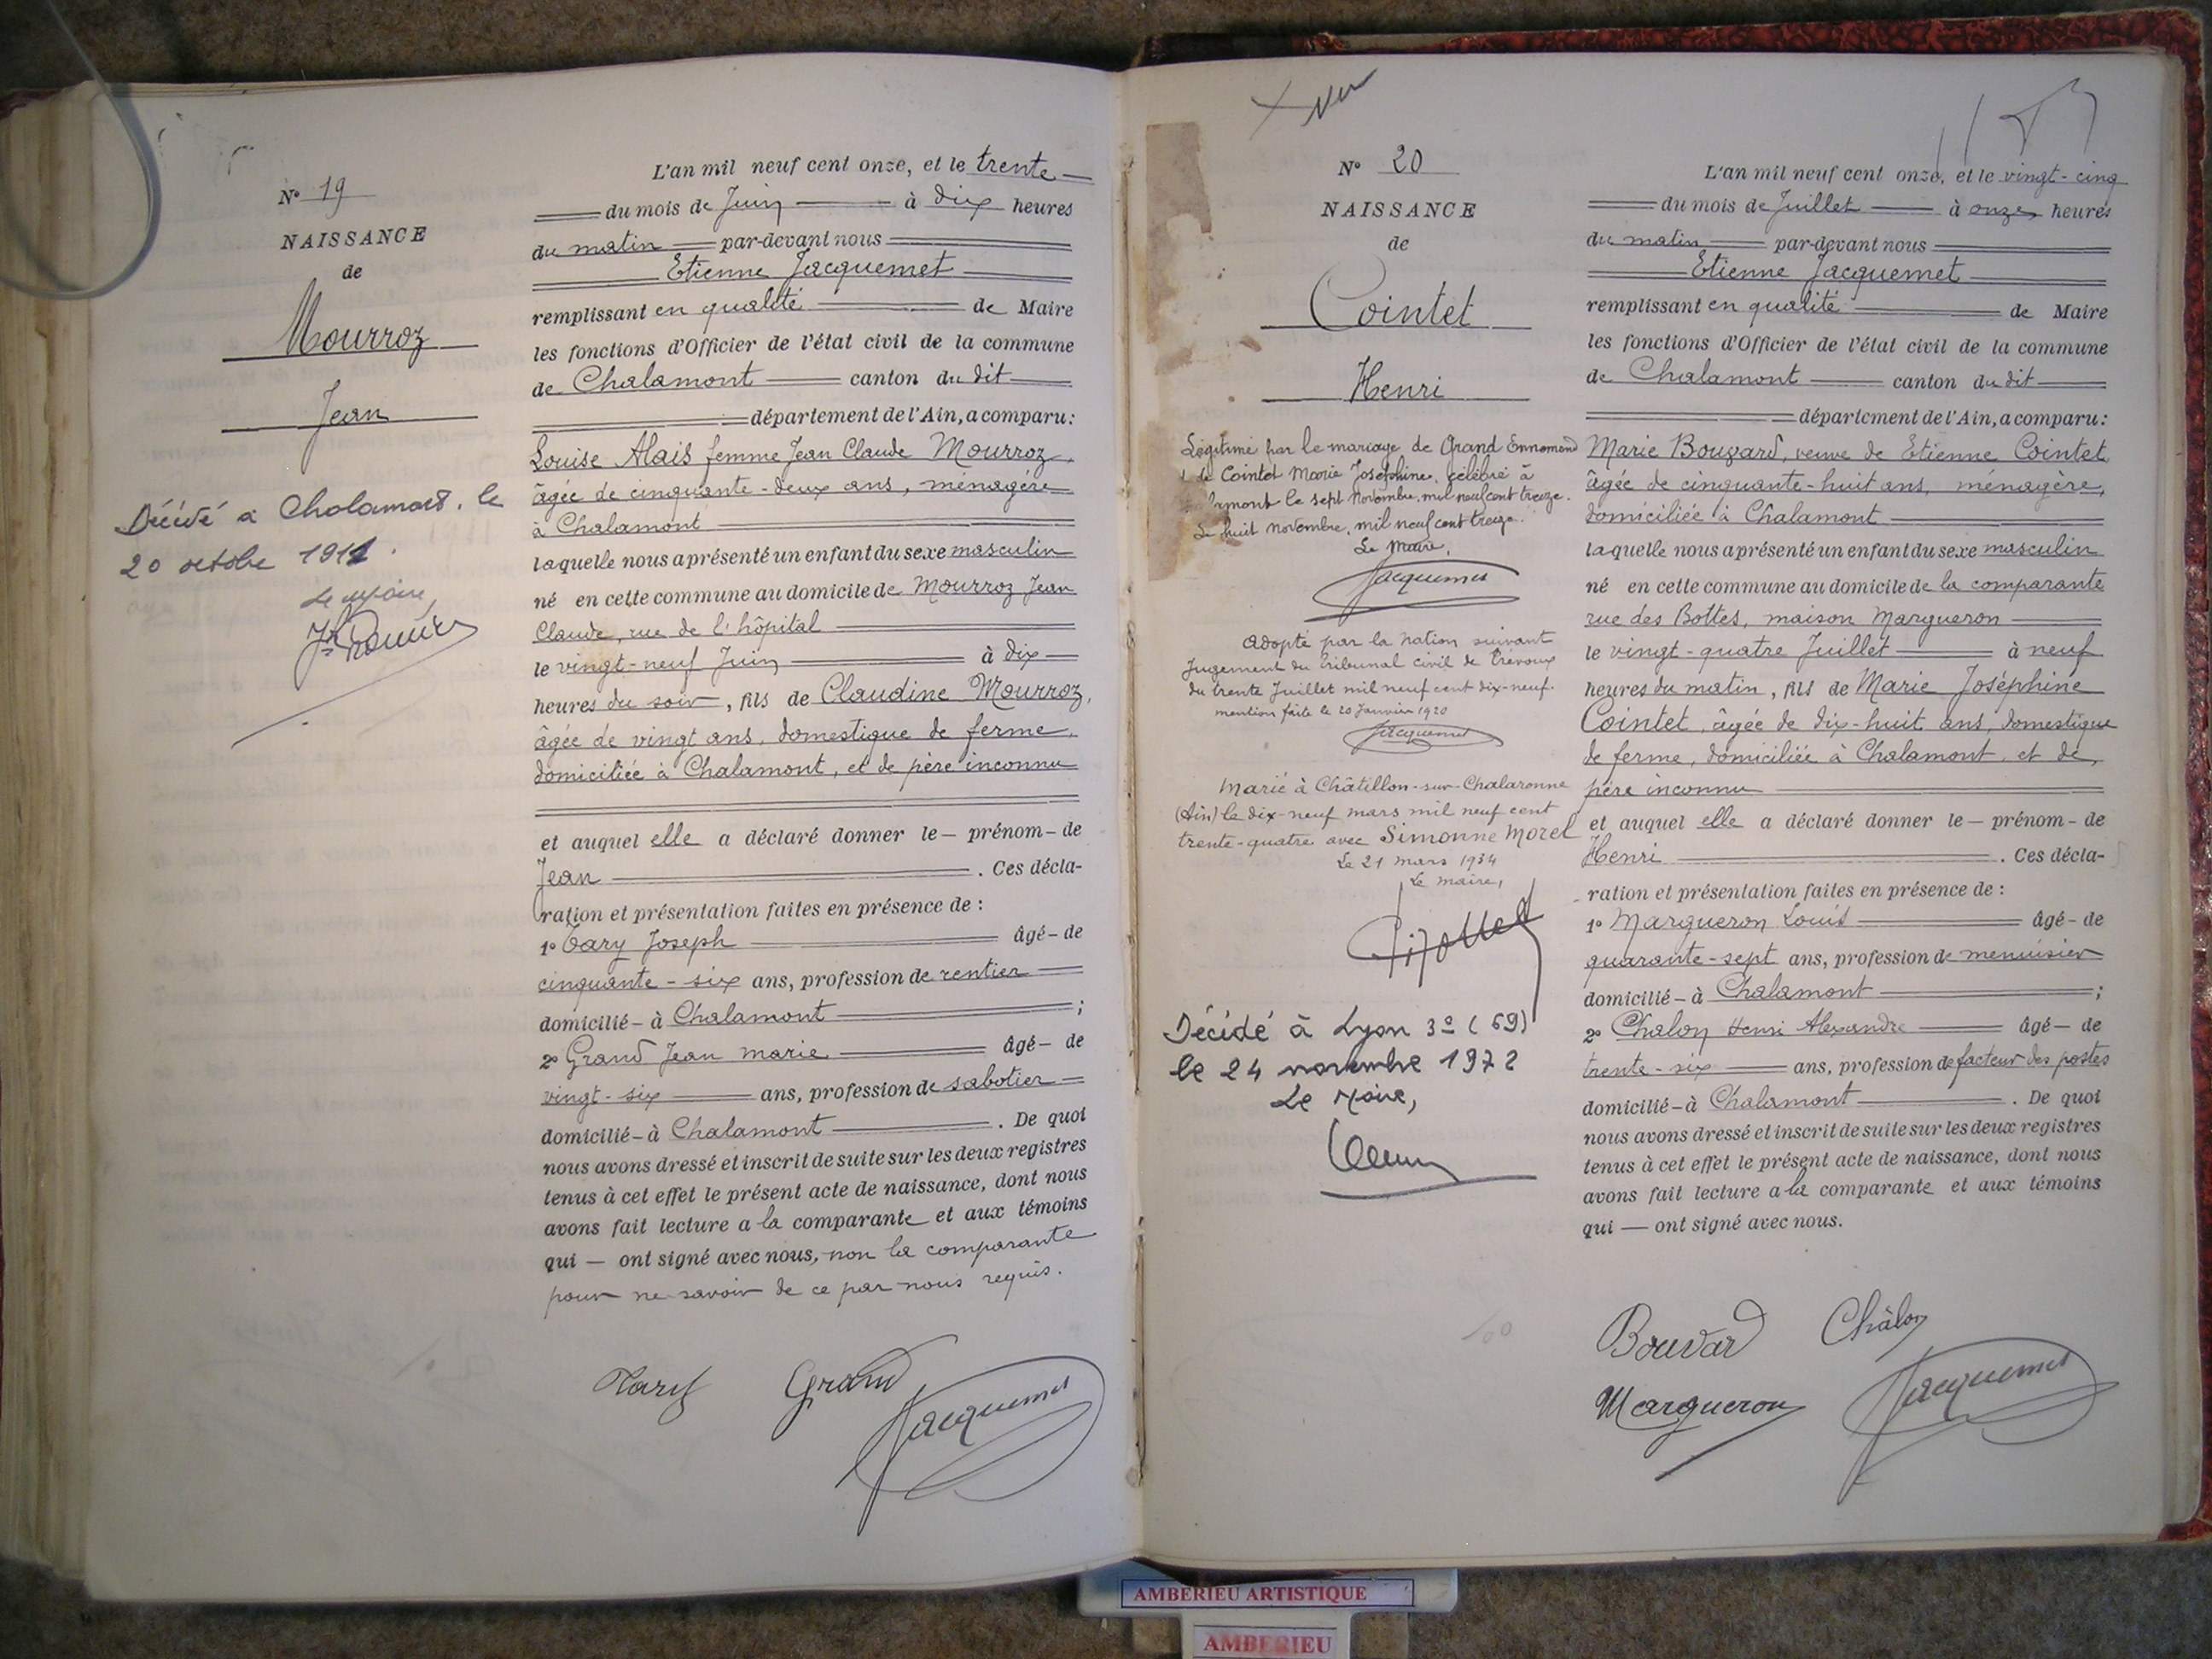 N° 19
NAISSANCE
de
Mourroz
Jean
Décédé à Chalamont, le
20 octobre 1911.
Le Maire,
L'an mil neuf cent onze, et le trente
du mois de Juin à dix heures
du matin par-devant nous
Etienne Jacquemet
remplissant en qualité de Maire
les fonctions d'Officier de l'état civil de la commune
de Chalamont canton du dit
département de l'Ain, a comparu :
Louise Alais femme Jean Claude Mourroz,
âgée de cinquante-deux ans, ménagère
à Chalamont
laquelle nous a présenté un enfant du sexe masculin
né en cette commune au domicile de Mourroz Jean
Claude, rue de l'hôpital
le vingt-neuf Juin à dix
heures du soir, fils de Claudine Mourroz,
âgée de vingt ans, domestique de ferme,
domiciliée à Chalamont, et de père inconnu
et auquel elle a déclaré donner le prénom de
Jean . Ces décla-
ration et présentation faites en présence de :
1° Tary Joseph âgé de
cinquante-six ans, profession de rentier
domicilié à Chalamont ;
2° Grand Jean Marie âgé de
vingt-six ans, profession de sabotier
domicilié à Chalamont . De quoi
nous avons dressé et inscrit de suite sur les deux registres
tenus à cet effet le présent acte de naissance, dont nous
avons fait lecture a la comparante et aux témoins
qui — ont signé avec nous, non la comparante
pour ne savoir de ce par nous requis.
Tary Grand
Jacquemet
ver
N° 20
NAISSANCE
de
Cointet
Henri
Légitimé par le mariage de Grand Ennemond
de Cointet Marie Joséphine, célébré à
lamont le sept Novembre, mil neuf cent treize.
Le huit novembre, mil neuf cent treize.
Le Maire,
Jacquemet
Adopté par la Nation suivant
Jugement du tribunal civil de Trévoux
du trente Juillet mil neuf cent dix-neuf.
mention faite le 20 Janvier 1920
Jacquemet
Marié à Châtillon-sur-Chalaronne
(Ain) le dix-neuf mars mil neuf cent
trente-quatre avec Simonne Morel
Le 21 mars 1934
Le maire,
Décédé à Lyon 3e (69)
le 24 novembre 1972
Le Maire,
L'an mil neuf cent onze, et le vingt-cinq
du mois de Juillet à onze heures
du matin par-devant nous
Etienne Jacquemet
remplissant en qualité de Maire
les fonctions d'Officier de l'état civil de la commune
de Chalamont canton du dit
département de l'Ain, a comparu :
Marie Bouvard, veuve de Etienne Cointet
âgée de cinquante-huit ans, ménagère,
domiciliée à Chalamont
laquelle nous a présenté un enfant du sexe masculin
né en cette commune au domicile de la comparante
rue des Bottes, maison Margueron
le vingt-quatre Juillet à neuf
heures du matin, fils de Marie Joséphine
Cointet, âgée de dix-huit ans, domestique
de ferme, domiciliée à Chalamont, et de
père inconnu
et auquel elle a déclaré donner le prénom de
Henri . Ces décla-
ration et présentation faites en présence de :
1° Margueron Louis âgé de
quarante-sept ans, profession de menuisier
domicilié à Chalamont ;
2° Chalon Henri Alexandre âgé de
trente-six ans, profession de facteur des postes
domicilié à Chalamont . De quoi
nous avons dressé et inscrit de suite sur les deux registres
tenus à cet effet le présent acte de naissance, dont nous
avons fait lecture a la comparante et aux témoins
qui — ont signé avec nous.
Bouvard Châlon
Margueron Jacquemet
AMBERIEU ARTISTIQUE
AMBERIEU